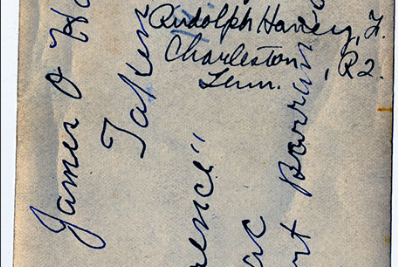 Rudolph Harvey, Jr.
Charleston, R2.
Tenn.
James O Ha
Taken
rence"
ac
rt Barran